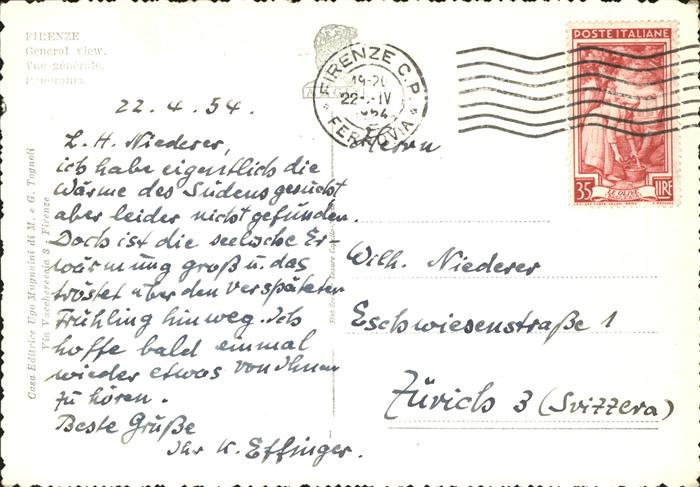 FIRENZE
General view.
Vue générale.
Panorama.
22.4.54.
L. H. Niederer,
ich habe eigentlich die
Wärme des Südens gesucht
aber leider nicht gefunden.
Doch ist die seelische Er-
wärmung groß u. das
tröstet über den verspäteten
Frühling hinweg. Ich
hoffe bald einmal
wieder etwas von Ihnen
zu hören.
Beste Grüße
Ihr K. Effinger.
Casa Editrice Ugo Mugnaini di M. e G. Tognoli
Via Vacchereccia 3 - Firenze
FIRENZE C.P.
19-20
22-IV
1954
FERROVIA
POSTE ITALIANE
35 LIRE
LE OLIVE
Herrn
Wilh. Niederer
Eschwiesenstraße 1
Zürich 3 (Svizzera)